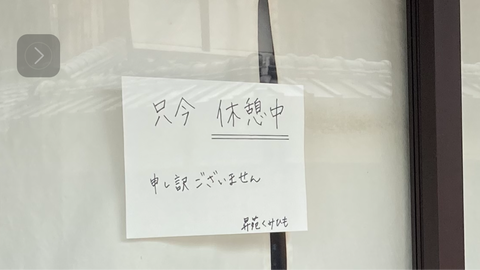 只今 休憩中
申し訳ございません
昇苑くみひも